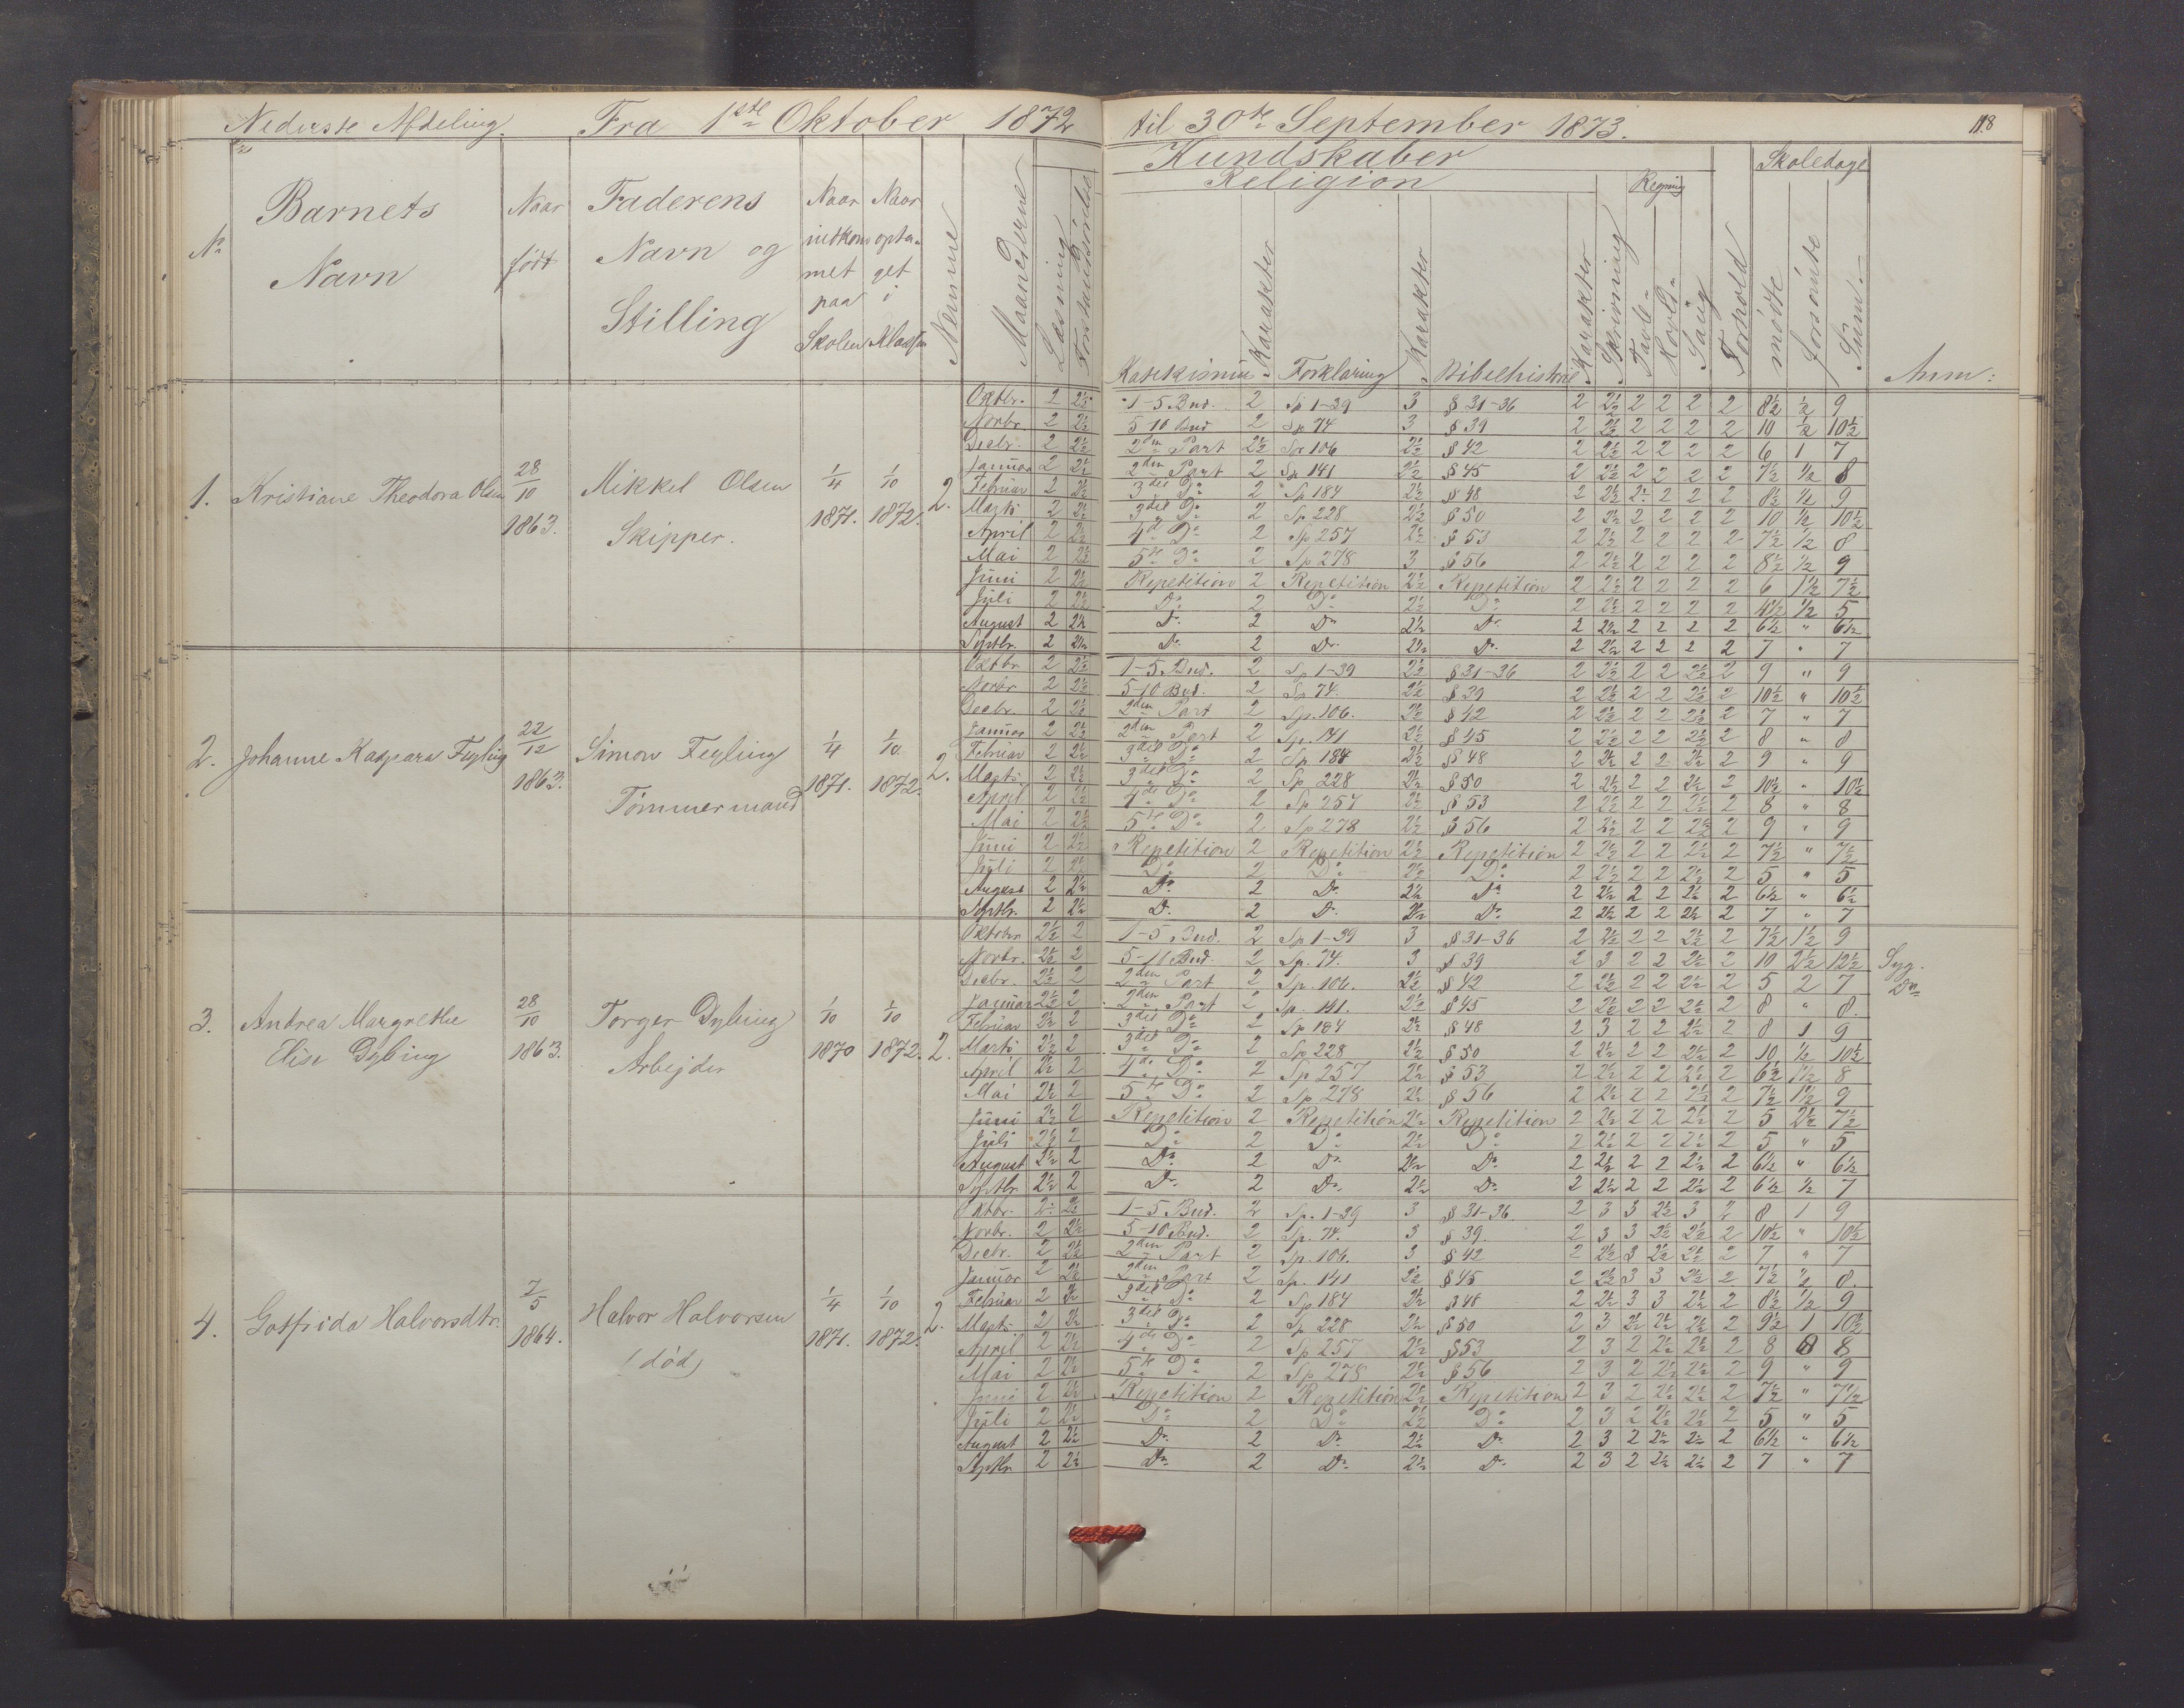 Nederste Afdeling. Fra 1ste Oktober 1872 til 30te September 1873. 118
Kundskaber Skoledage
Religion Regning
No Barnets Navn Naar født Faderens Navn og Stilling Naar indkommet paa Skolen Naar optaget i Klassen Nemme Maanederne Læsning Forstandsøvelse Katekismus Karakter Forklaring Karakter Bibelhistorie Karakter Skrivning Tavle- Hoved- Sang Forhold mødte forsømte Sum- Anm:
1. Kristiane Theodora Olsen 28/10 1863. Mikkel Olsen Skipper. 1/4 1871. 1/10 1872. 2.
Oktbr. 2 2½ 1-5 Bud. 2 Sp 1-39 3 § 31-36 2 2½ 2 2 2 2 8½ ½ 9
Novbr. 2 2½ 5-10 Bud 2 Sp 74 3 § 39 2 2½ 2 2 2 2 10 ½ 10½
Decbr. 2 2½ 2den Part 2½ Sp 106 2½ § 42 2 2½ 2 2 2 2 6 1 7
Januar 2 2½ 2den Part 2 Sp 141 2½ § 45 2 2½ 2 2 2 2 7½ ½ 8
Februar 2 2½ 3die Do 2 Sp 184 2½ § 48 2 2½ 2 2 2 2 8½ ½ 9
Marts 2 2½ 3die Do 2 Sp 228 2½ § 50 2 2½ 2 2 2 2 10 ½ 10½
April 2 2½ 4de Do 2 Sp 257 2½ § 53 2 2½ 2 2 2 2 7½ ½ 8
Mai 2 2½ 5te Do 2 Sp 278 3 § 56 2 2½ 2 2 2 2 8½ ½ 9
Juni 2 2½ Repetition 2 Repetition 2½ Repetition 2 2½ 2 2 2 2 6 1½ 7½
Juli 2 2½ Do 2 Do 2½ Do 2 2½ 2 2 2 2 4½ ½ 5
August 2 2½ Do 2 Do 2½ Do 2 2½ 2 2 2 2 6½ " 6½
Septbr. 2 2½ Do 2 Do 2½ Do 2 2½ 2 2 2 2 7 " 7
2. Johanne Kaspara Feyling 22/12 1863. Simon Feyling Tømmermand 1/4 1871. 1/10 1872. 2.
Oktbr 2 2½ 1-5 Bud. 2 Sp 1-39 2½ § 31-36 2 2½ 2 2 2½ 2 9 " 9
Novbr 2 2½ 5-10 Bud. 2 Sp 74. 2½ § 39 2 2½ 2 2 2½ 2 10½ " 10½
Decbr. 2 2½ 2den Part 2 Sp. 106. 2½ § 42 2 2½ 2 2 2½ 2 7 " 7
Januar 2 2½ 2den Part 2 Sp. 141 2½ § 45 2 2½ 2 2 2½ 2 8 " 8
Februar 2 2½ 3die Do 2 Sp 184 2½ § 48 2 2½ 2 2 2½ 2 9 " 9
Marts 2 2½ 3die Do 2 Sp 228 2½ § 50 2 2½ 2 2 2½ 2 10½ " 10½
April 2 2½ 4de Do 2 Sp 257 2½ § 53 2 2½ 2 2 2½ 2 8 " 8
Mai 2 2½ 5te Do 2 Sp 278 2½ § 56 2 2½ 2 2 2½ 2 9 " 9
Juni 2 2½ Repetition 2 Repetition 2½ Repetition 2 2½ 2 2 2½ 2 7½ " 7½
Juli 2 2½ Do 2 Do 2½ Do 2 2½ 2 2 2½ 2 5 " 5
August 2 2½ Do 2 Do 2½ Do 2 2½ 2 2 2½ 2 6½ " 6½
Septbr. 2 2½ Do 2 Do 2½ Do 2 2½ 2 2 2½ 2 7 " 7
3. Andrea Margrethe Elise Dybing 28/10 1863. Torger Dybing Arbejder 1/10 1870 1/10 1872. 2.
Oktober 2½ 2 1-5 Bud. 2 Sp 1-39 3 § 31-36 2 2½ 2 2 2½ 2 7½ 1½ 9
Novbr. 2½ 2 5-10 Bud. 2 Sp. 74. 3 § 39 2 3 2 2 2½ 2 10 2½ 12½ Syg.
Decbr. 2½ 2 2den Part 2 Sp. 106. 2½ § 42 2 2½ 2 2 2½ 2 5 2 7 Do
Januar 2½ 2 2den Part 2 Sp. 141. 2½ § 45 2 2½ 2 2 2½ 2 8 " 8.
Februar 2½ 2 3die Do 2 Sp 184 2½ § 48 2 3 2 2 2½ 2 8 1 9
Marts 2½ 2 3die Do 2 Sp 228 2½ § 50 2 2½ 2 2 2½ 2 10 ½ 10½
April 2½ 2 4de Do 2 Sp 257 2½ § 53 2 2½ 2 2 2½ 2 6½ 1½ 8
Mai 2½ 2 5te Do 2 Sp 278 2½ § 56 2 2½ 2 2 2½ 2 7½ 1½ 9
Juni 2½ 2 Repetition 2 Repetition 2½ Repetition 2 2½ 2 2 2½ 2 5 2½ 7½
Juli 2½ 2 Do 2 Do 2½ Do 2 2½ 2 2 2½ 2 5 " 5
August 2½ 2 Do 2 Do 2½ Do 2 2½ 2 2 2½ 2 6½ " 6½
Septbr. 2½ 2 Do 2 Do 2½ Do 2 2½ 2 2 2½ 2 6½ ½ 7
4. Gotfrida Halvorsdtr. 7/5 1864. Halvor Halvorsen (død) 1/4 1871. 1/10 1872. 2.
Oktbr. 2 2½ 1-5 Bud. 2 Sp. 1-39 3 § 31-36. 2 3 3 2½ 3 2 8 1 9
Novbr. 2 2½ 5-10 Bud. 2 Sp. 74. 3 § 39. 2 3 3 2½ 2½ 2 10½ " 10½
Decbr. 2 2½ 2den Part 2 Sp. 106. 3 § 42 2 2½ 3 2½ 2½ 2 7 " 7
Januar 2 2½ 2den Part 2 Sp. 141 2½ § 45 2 2½ 3 3 2½ 2 7½ ½ 8.
Februar 2 2½ 3die Do 2 Sp 184 2½ § 48 2 2½ 3 3 2½ 2 8½ ½ 9
Marts 2 2½ 3die Do 2 Sp 228 2½ § 50 2 3 2½ 2½ 2½ 2 9½ 1 10½
April 2 2½ 4de Do 2 Sp 257 2½ § 53 2 3 2 2½ 2½ 2 8 8
Mai 2 2½ 5te Do 2 Sp 278 2½ § 56 2 3 2 2½ 2½ 2 9 " 9
Juni 2 2½ Repetition 2 Repetition 2½ Repetition 2 3 2 2½ 2½ 2 7½ " 7½
Juli 2 2½ Do 2 Do 2½ Do 2 3 2 2½ 2½ 2 5 " 5
August 2 2½ Do 2 Do 2½ Do 2 3 2 2½ 2½ 2 6½ " 6½
Septbr. 2 2½ Do 2 Do 2½ Do 2 3 2 2½ 2½ 2 7 " 7